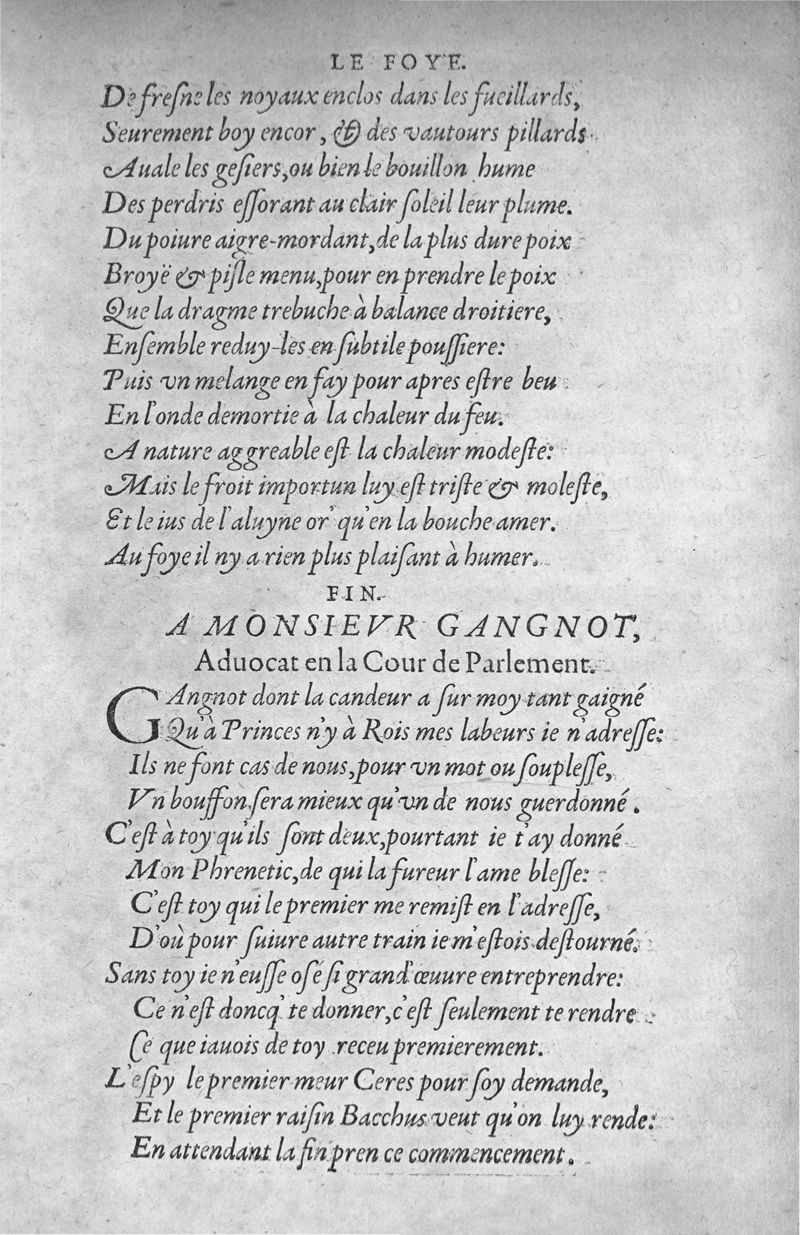 LE FOYE.
De fresne les noyaux enclos dans les fueillards,
Seurement boy encor, & des vautours pillards
Auale les gesiers, ou bien le bouillon hume
Des perdris essorant au clair soleil leur plume.
Du poiure aigre-mordant, de la plus dure poix
Broyë & pisle menu, pour en prendre le poix
Que la dragme trebuche à balance droitiere,
Ensemble reduy-les en subtile poussiere:
Puis vn melange en fay pour apres estre beu
En l'onde demortie à la chaleur du feu.
A nature aggreable est la chaleur modeste:
Mais le froit importun luy est triste & moleste,
Et le ius de l'aluyne or' qu'en la bouche amer.
Au foye il ny a rien plus plaisant à humer.
FIN.
A MONSIEVR GANGNOT,
Aduocat en la Cour de Parlement.
GAngnot dont la candeur a sur moy tant gaigné
Qu'à Princes n'y à Rois mes labeurs ie n'adresse:
Ils ne font cas de nous, pour vn mot ou souplesse,
Vn bouffon sera mieux qu'vn de nous guerdonné.
C'est à toy qu'ils sont deux, pourtant ie t'ay donné
Mon Phrenetic, de qui la fureur l'ame blesse:
C'est toy qui le premier me remist en l'adresse,
D'où pour suiure autre train ie m'estois destourné.
Sans toy ie n'eusse osé si grand' œuure entreprendre:
Ce n'est doncq' te donner, c'est seulement te rendre
Ce que iauois de toy receu premierement.
L'espy le premier meur Ceres pour soy demande,
Et le premier raisin Bacchus veut qu'on luy rende:
En attendant la fin pren ce commencement.